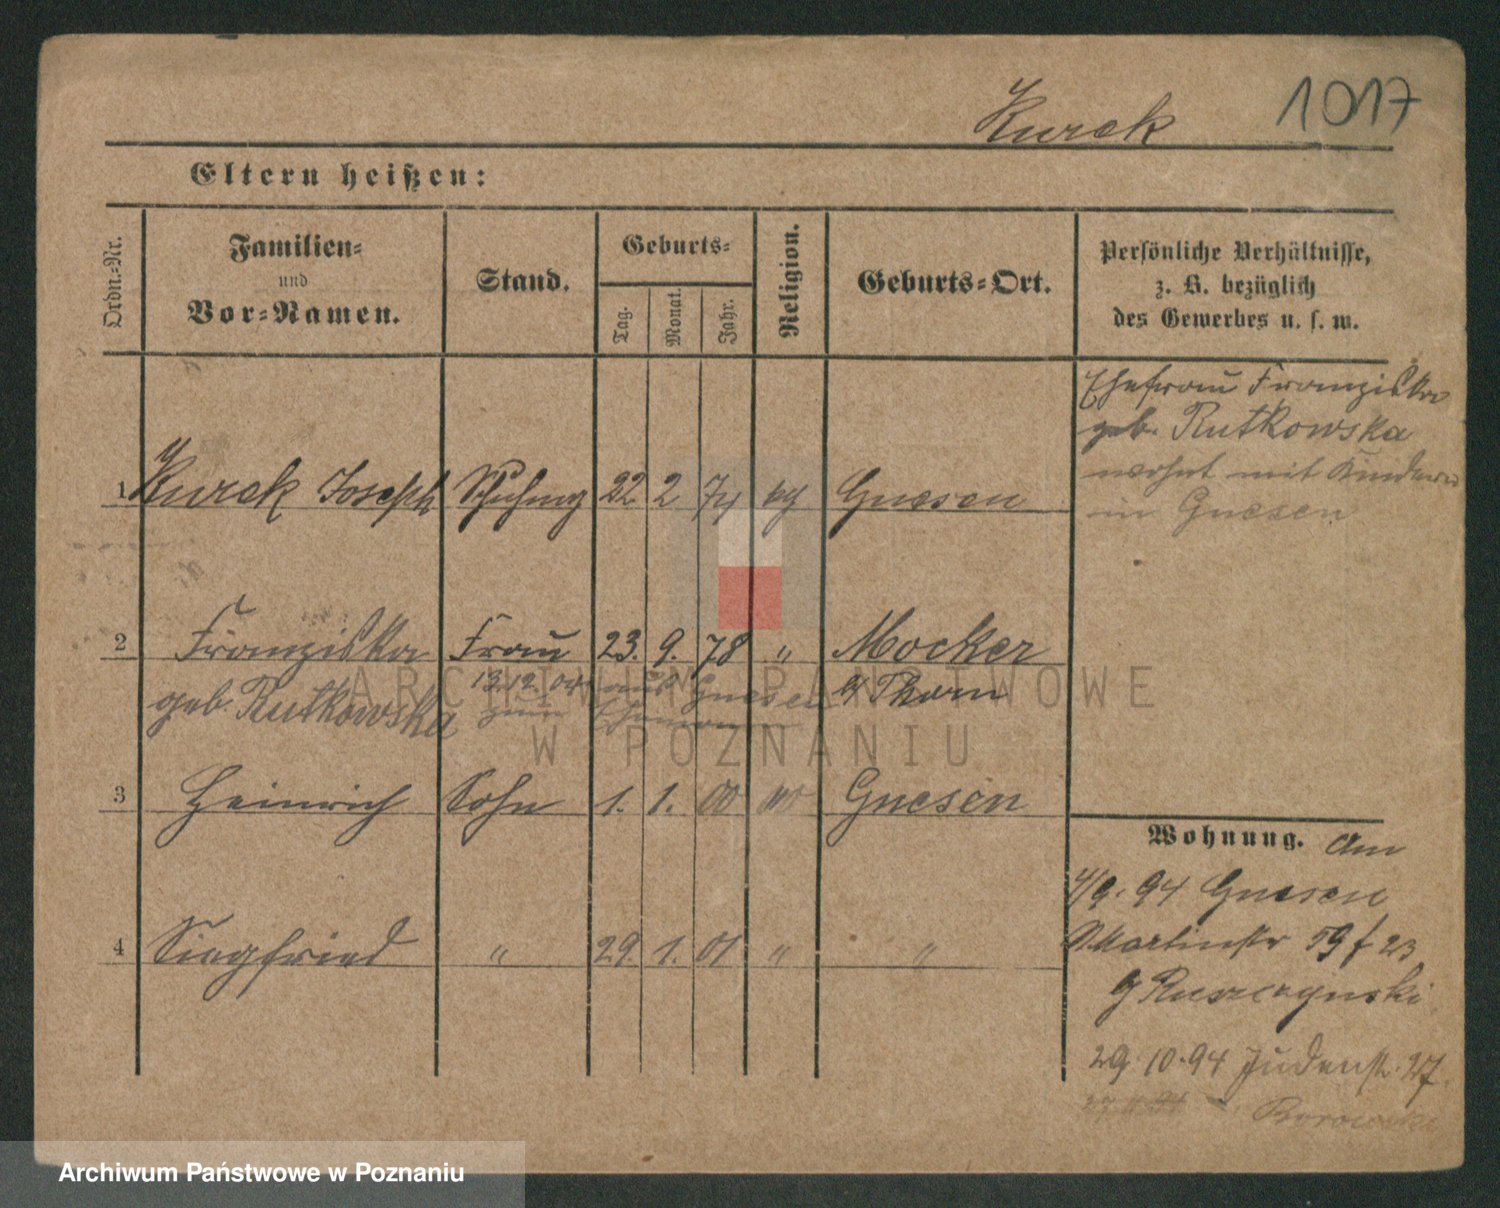 Kurek 1017
Eltern heißen:
Ordn.-Nr.
Familien-
und
Vor-Namen.
Stand.
Geburts-
Tag.
Monat.
Jahr.
Religion.
Geburts-Ort.
Persönliche Verhältnisse,
z. B. bezüglich
des Gewerbes u. s. w.
Ehefrau Franziska
geb. Rutkowska
wohnt mit Kindern
in Gnesen
1 Kurek Joseph Schuhmg 22 2 74 kg Gnesen
2 Franziska Frau 23. 9. 78 " Mocker
geb. Rutkowska 13.12.04 aus Gnesen b/ Thorn
zum Ehemann
3 Heinrich Sohn 1. 1. 00 Gnesen
4 Siegfried " 29. 1. 01 " "
Wohnung. Am
4/9. 94 Gnesen
Martinstr 59 f 23
b/ Ruszczynski
29.10.94 Judenstr. 27
Borowski
ARCHIWUM PAŃSTWOWE
W POZNANIU
Archiwum Państwowe w Poznaniu